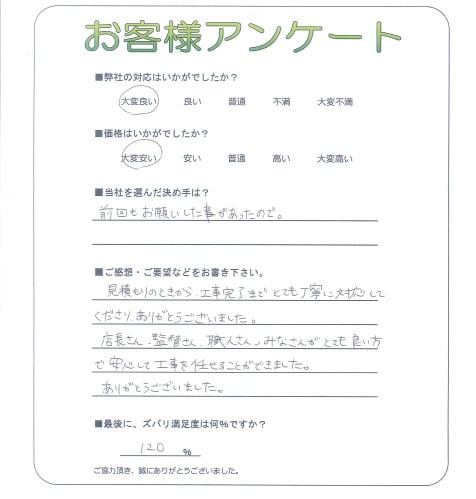 お客様アンケート
■弊社の対応はいかがでしたか？
大変良い 良い 普通 不満 大変不満
■価格はいかがでしたか？
大変安い 安い 普通 高い 大変高い
■当社を選んだ決め手は？
前回もお願いした事があったので。
■ご感想・ご要望などをお書き下さい。
見積もりのときから、工事完了までとても丁寧に対応して
くださり、ありがとうございました。
店長さん、監督さん、職人さん、みなさんがとても良い方
で安心して工事を任せることができました。
ありがとうございました。
■最後に、ズバリ満足度は何％ですか？
120 ％
ご協力頂き、誠にありがとうございました。